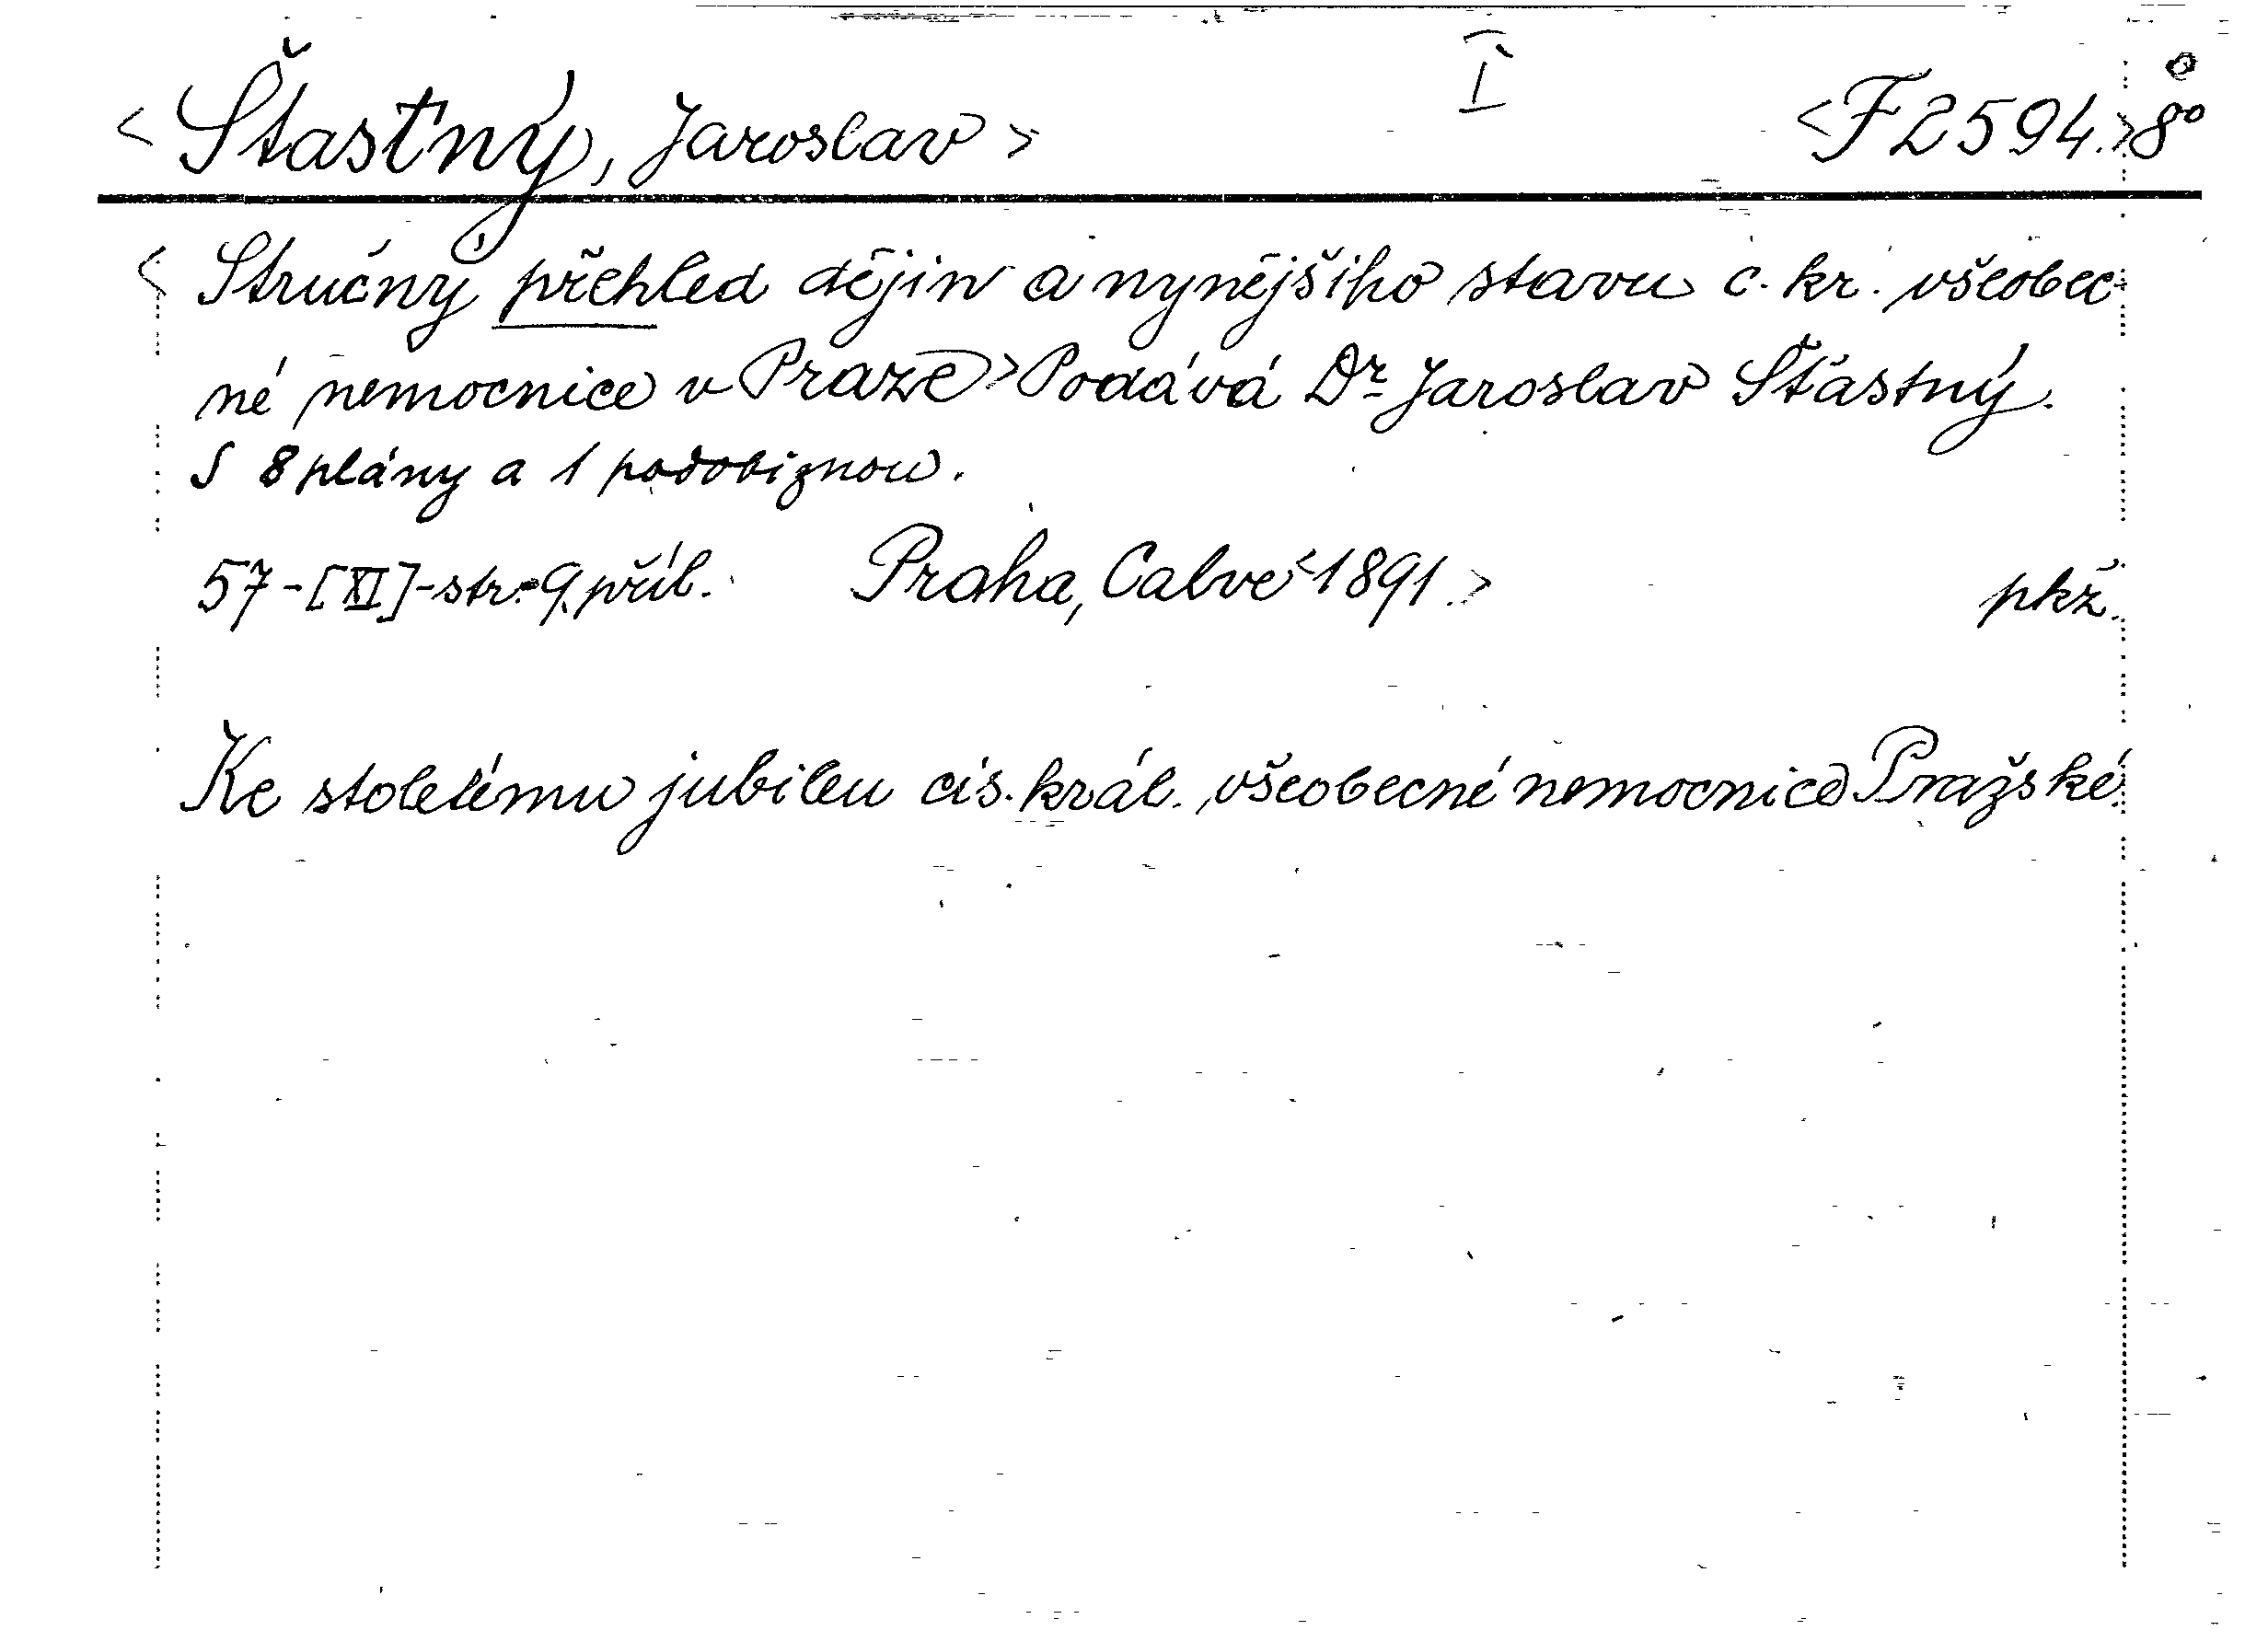 <Šťastný, Jaroslav> I <F 2594.> 8°
<Stručný přehled dějin a nynějšího stavu c. kr. všeobec-
né nemocnice v Praze> Podává Dr. Jaroslav Šťastný.
S 8 plány a 1 podobiznou.
57-[XI]-str. 9 příl. Praha, Calve <1891.> pkž.
Ke stoletému jubileu cís. král. všeobecné nemocnice Pražské.